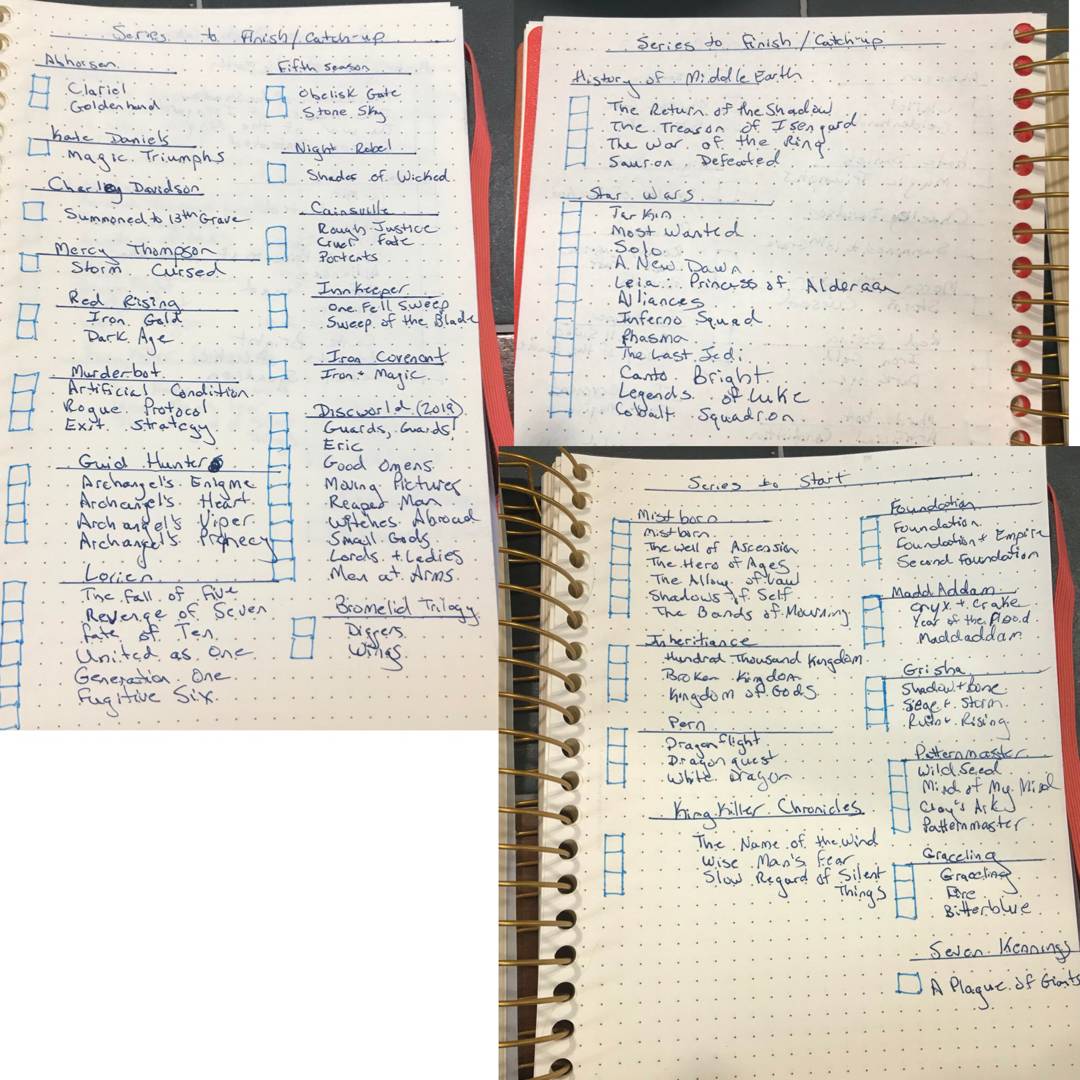 Series to Finish/Catch-up
Abhorsen
Clariel
Goldenhand
Kate Daniels
Magic Triumphs
Charley Davidson
Summoned to 13th Grave
Mercy Thompson
Storm Cursed
Red Rising
Iron Gold
Dark Age
Murderbot
Artificial Condition
Rogue Protocol
Exit Strategy
Guid Hunter
Archangel's Enigme
Archangel's Heart
Archangel's Viper
Archangel's Prophecy
Lorien
The Fall of Five
Revenge of Seven
Fate of Ten
United as One
Generation One
Fugitive Six
Fifth Season
Obelisk Gate
Stone Sky
Night Rebel
Shades of Wicked
Cainsville
Rough Justice
Cruel Fate
Portents
Innkeeper
One Fell Sweep
Sweep of the Blade
Iron Covenant
Iron + Magic
Discworld (2019)
Guards, Guards!
Eric
Good Omens
Moving Pictures
Reaper Man
Witches Abroad
Small Gods
Lords + Ladies
Men at Arms
Bromelid Trilogy
Diggers
Wings
Series to Finish/Catch-up
History of Middle Earth
The Return of the Shadow
The Treason of Isengard
The War of the Ring
Sauron Defeated
Star Wars
Tarkin
Most Wanted
Solo
A New Dawn
Leia: Princess of Alderaan
Alliances
Inferno Squad
Phasma
The Last Jedi
Canto Bright
Legends of Luke
Cobalt Squadron
Series to Start
Mistborn
Mistborn
The Well of Ascension
The Hero of Ages
The Alloy of Law
Shadows of Self
The Bands of Mourning
Inheritiance
Hundred Thousand Kingdom
Broken Kingdom
Kingdom of Gods
Pern
Dragonflight
Dragonquest
White Dragon
King Killer Chronicles
The Name of the Wind
Wise Man's Fear
Slow Regard of Silent
Things
Foundation
Foundation
Foundation + Empire
Second Foundation
Madd Addam
Oryx + Crake
Year of the Flood
Maddaddam
Grisha
Shadow + Bone
Siege + Storm
Ruin + Rising
Patternmaster
Wild Seed
Mind of My Mind
Clay's Ark
Patternmaster
Graceling
Graceling
Fire
Bitterblue
Seven Kennings
A Plague of Giants